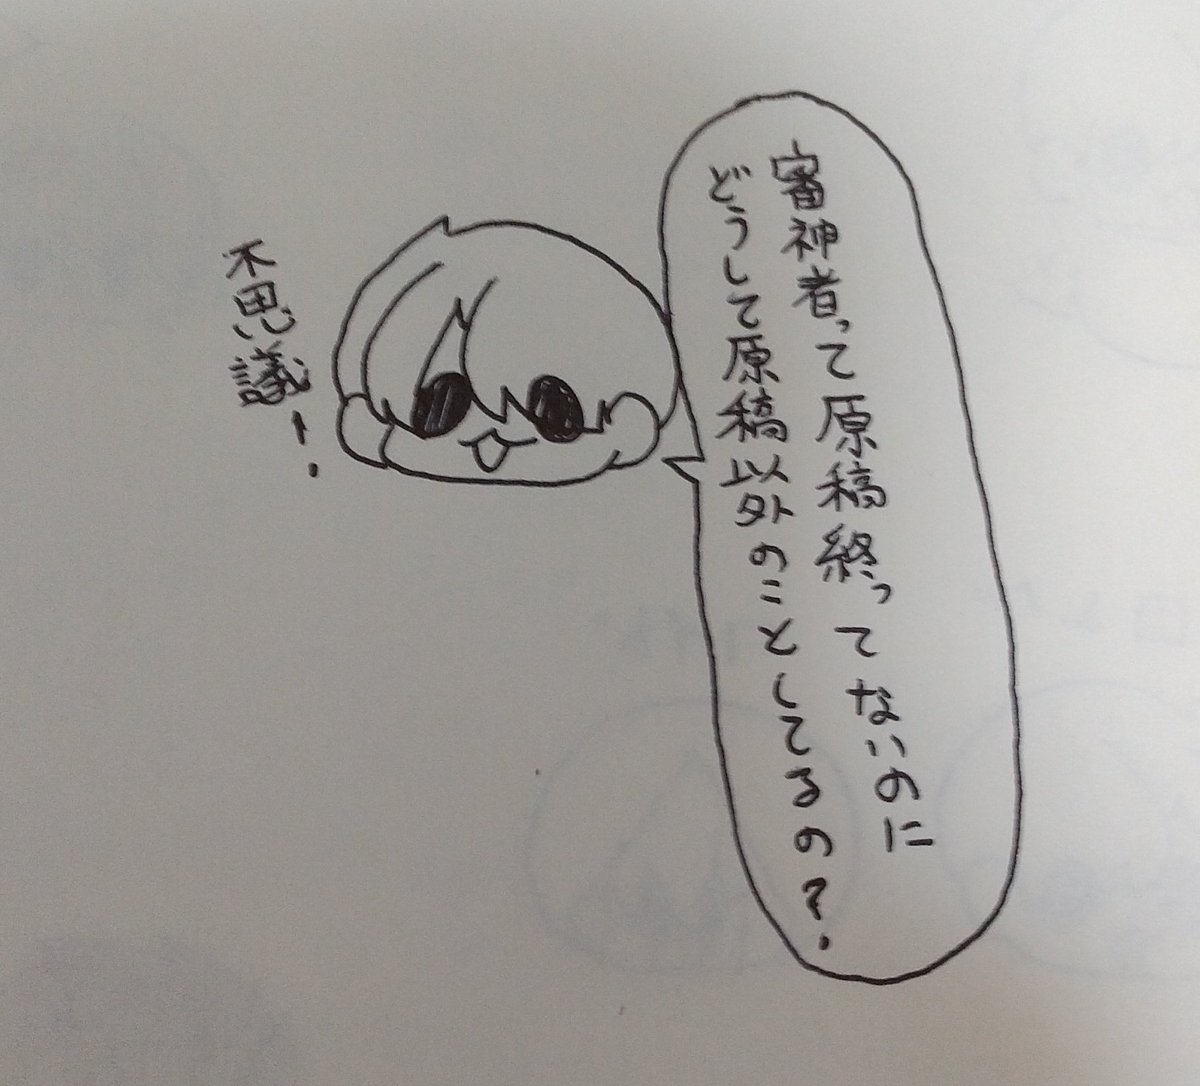 審神者って原稿終ってないのに
どうして原稿以外のことしてるの?
不思議ー!